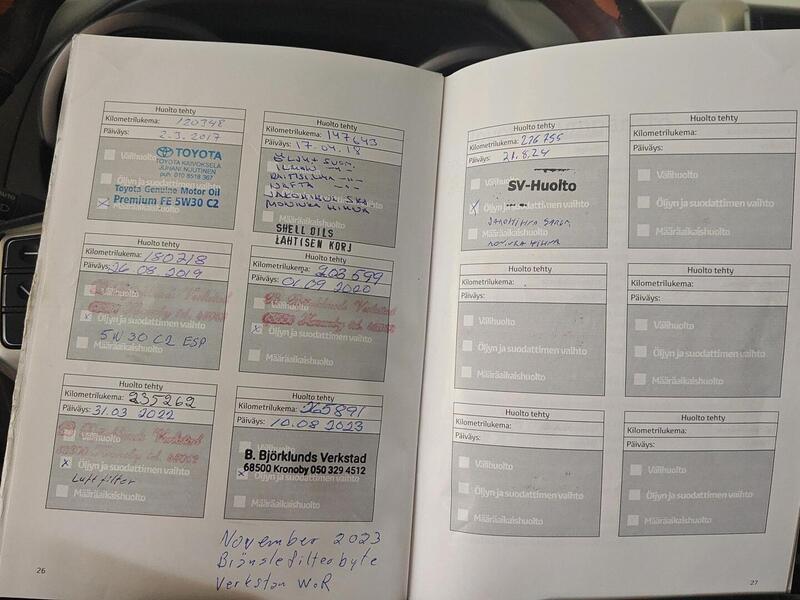 Huolto tehty
Kilometrilukema: 120348
Päiväys: 2.3.2017
Välihuolto
TOYOTA
TOYOTA KAIVOKSELA
JUHANI NUUTINEN
puh. 010 8518 367
Öljyn ja suodattimen vaihto
Toyota Genuine Motor Oil
Premium FE 5W30 C2
Huolto tehty
Kilometrilukema: 147643
Päiväys: 17.04.18
ÖLJY + SUOD.
ILMAN -"-
RAITISILMA -"-
NAFTA -"-
JAKOHIHNA SRJ
MONIURA HIHNA
Määräaikaishuolto
SHELL OILS
LAHTISEN KORJ
Huolto tehty
Kilometrilukema: 180718
Päiväys: 26.08.2019
Välihuolto
Öljyn ja suodattimen vaihto
5W30 C2 ESP
Määräaikaishuolto
Huolto tehty
Kilometrilukema: 203 599
Päiväys: 01.09 2020
Välihuolto
Öljyn ja suodattimen vaihto
Määräaikaishuolto
Huolto tehty
Kilometrilukema: 235262
Päiväys: 31.03 2022
Välihuolto
Öljyn ja suodattimen vaihto
Luftfilter
Määräaikaishuolto
Huolto tehty
Kilometrilukema: 265891
Päiväys: 10.08 2023
B. Björklunds Verkstad
68500 Kronoby 050 329 4512
Öljyn ja suodattimen vaihto
Määräaikaishuolto
November 2023
Bränslefilterbyte
Verkstan WoR
26
Huolto tehty
Kilometrilukema:
Päiväys: 21.8.24
Välihuolto
SV-Huolto
Öljyn ja suodattimen vaihto
Määräaikaishuolto
Huolto tehty
Kilometrilukema:
Päiväys:
Välihuolto
Öljyn ja suodattimen vaihto
Määräaikaishuolto
Huolto tehty
Kilometrilukema:
Päiväys:
Välihuolto
Öljyn ja suodattimen vaihto
Määräaikaishuolto
Huolto tehty
Kilometrilukema:
Päiväys:
Välihuolto
Öljyn ja suodattimen vaihto
Määräaikaishuolto
Huolto tehty
Kilometrilukema:
Päiväys:
Välihuolto
Öljyn ja suodattimen vaihto
Määräaikaishuolto
Huolto tehty
Kilometrilukema:
Päiväys:
Välihuolto
Öljyn ja suodattimen vaihto
Määräaikaishuolto
27